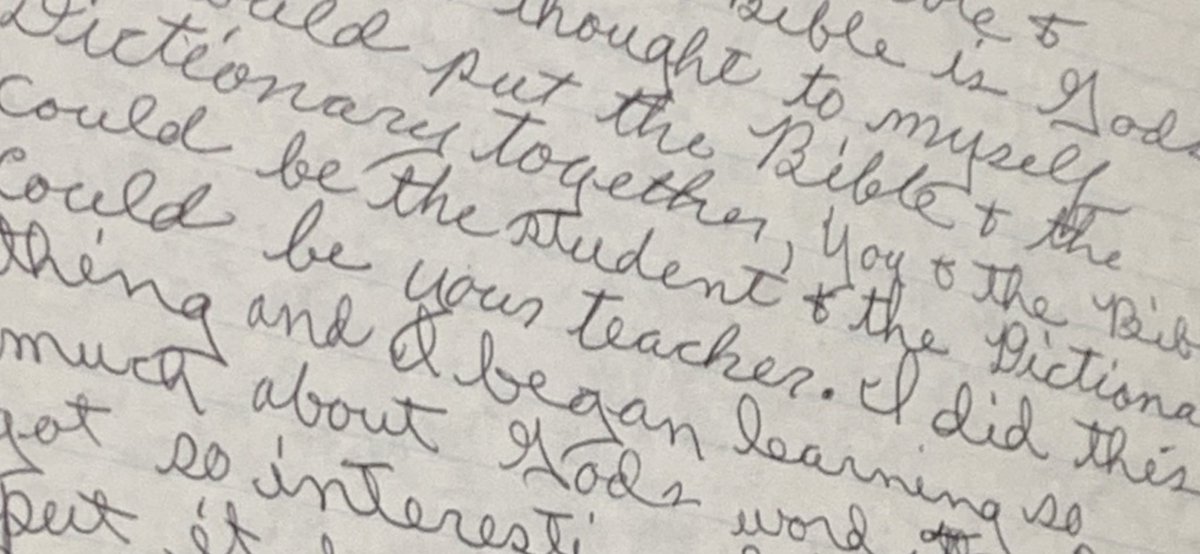 &
Bible is Gods
thought to myself
put the Bible & the
Dictionary together, You & the Bib
could be the student & the Dictiona
could be your teacher. I did this
thing and I began learning so
much about Gods word
got so interesti
put it